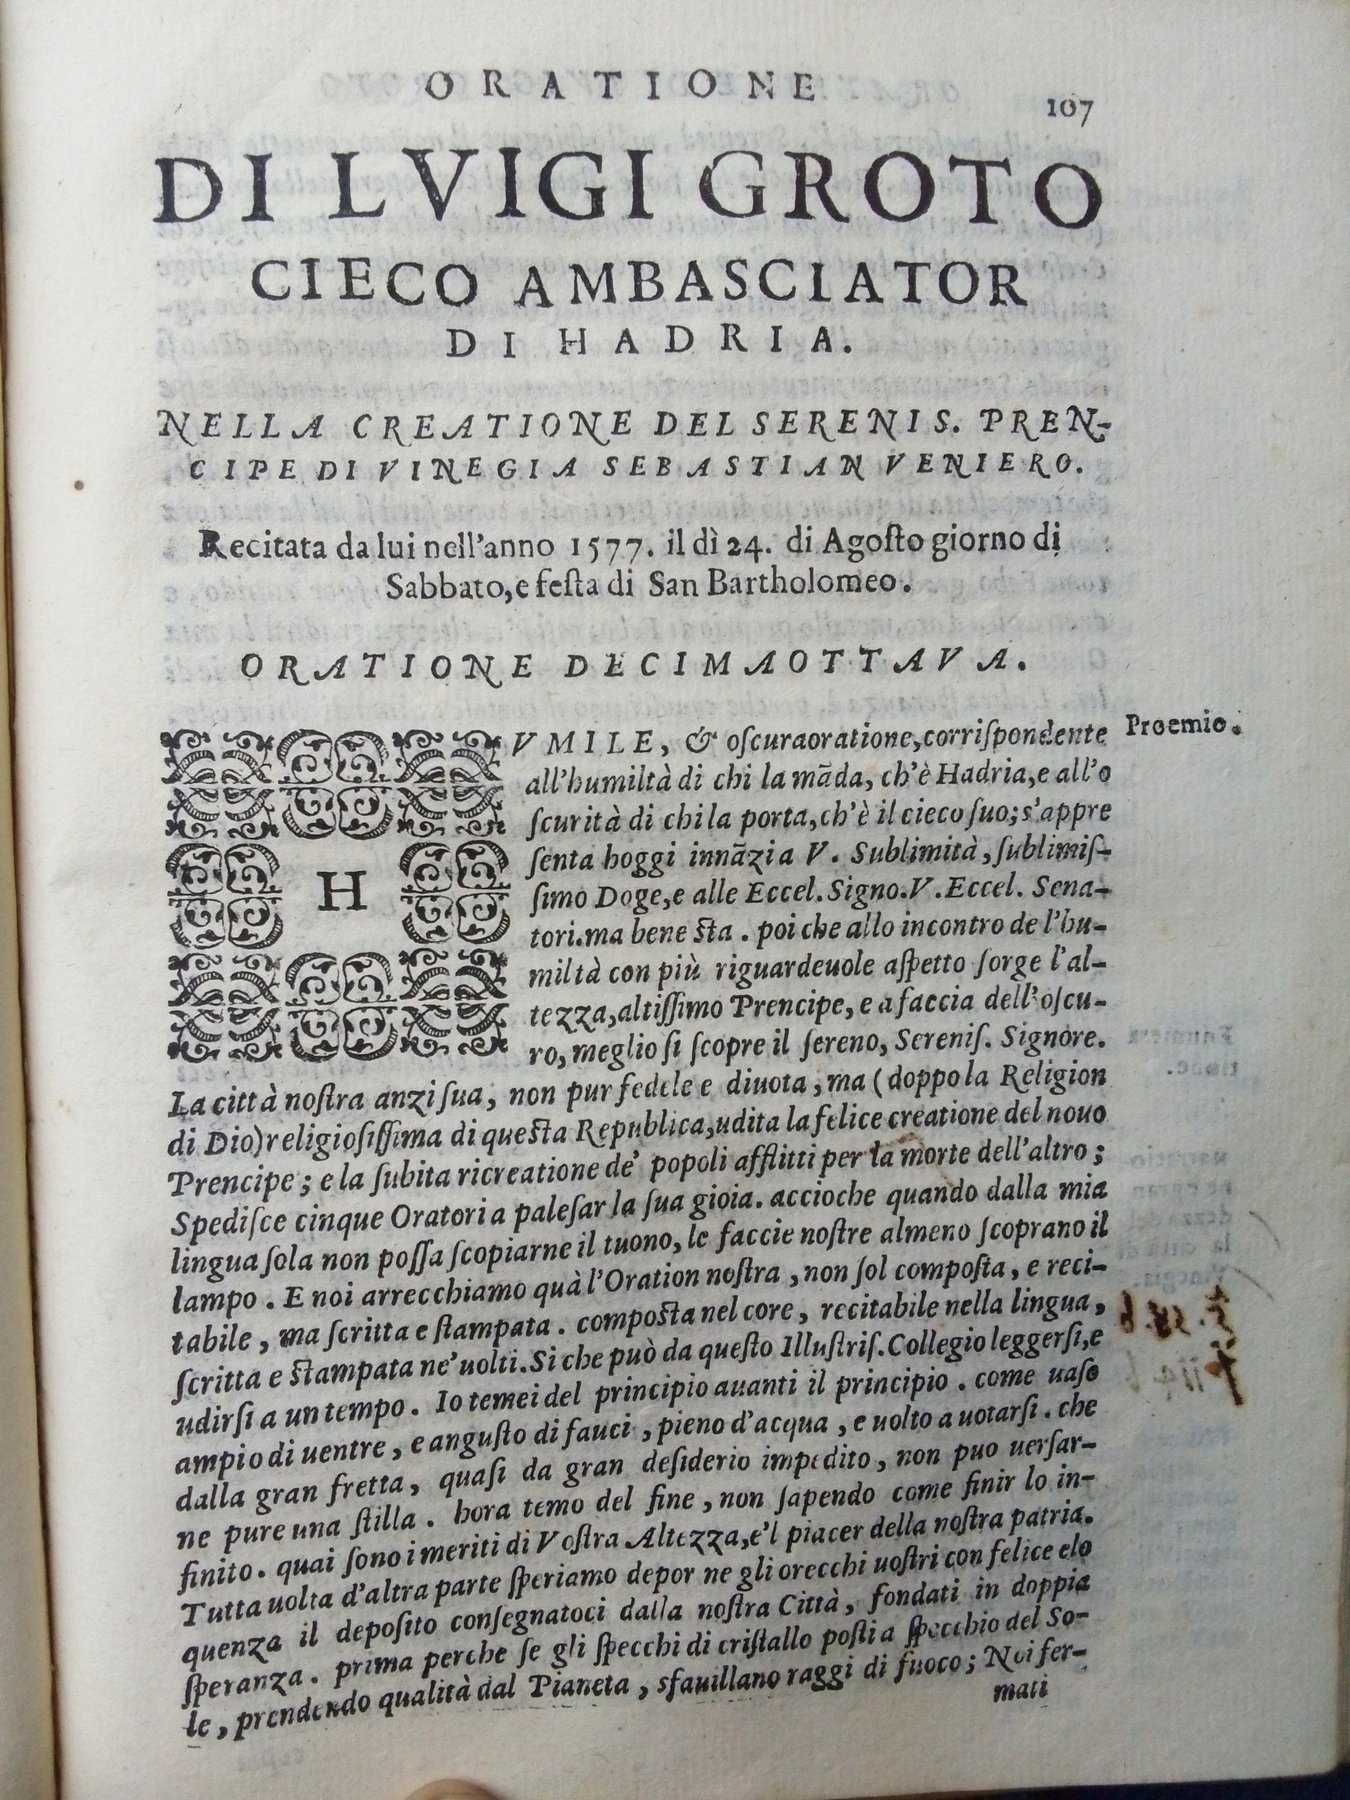 ORATIONE
107
DI LVIGI GROTO
CIECO AMBASCIATOR
DI HADRIA.
NELLA CREATIONE DEL SERENIS. PREN-
CIPE DI VINEGIA SEBASTIAN VENIERO.
Recitata da lui nell'anno 1577. il dì 24. di Agoſto giorno di
Sabbato, e feſta di San Bartholomeo.
ORATIONE DECIMAOTTAVA.
Proemio.
HVMILE, & oſcuraoratione, corriſpondente
all'humiltà di chi la mãda, ch'è Hadria, e all'o
ſcurità di chi la porta, ch'è il cieco ſuo; s'appre
ſenta hoggi innãzi a V. Sublimità, ſublimiſ-
ſimo Doge, e alle Eccel. Signo. V. Eccel. Sena-
tori. ma bene ſta. poi che allo incontro de l'hu-
miltà con più riguardeuole aſpetto ſorge l'al-
tezza, altiſſimo Prencipe, e a faccia dell'oſcu-
ro, meglio ſi ſcopre il ſereno, Sereniſ. Signore.
La città noſtra anzi ſua, non pur fedele e diuota, ma (doppo la Religion
di Dio) religioſiſſima di queſta Republica, udita la felice creatione del nouo
Prencipe; e la ſubita ricreatione de' popoli afflitti per la morte dell'altro;
Spediſce cinque Oratori a paleſar la ſua gioia. accioche quando dalla mia
lingua ſola non poſſa ſcopiarne il tuono, le faccie noſtre almeno ſcoprano il
lampo. E noi arrecchiamo quà l'Oration noſtra, non ſol compoſta, e reci-
tabile, ma ſcritta e ſtampata. compoſta nel core, recitabile nella lingua,
ſcritta e ſtampata ne' uolti. Si che può da queſto Illuſtriſ. Collegio leggerſi, e
udirſi a un tempo. Io temei del principio auanti il principio. come uaſo
ampio di uentre, e anguſto di fauci, pieno d'acqua, e uolto a uotarſi. che
dalla gran fretta, quaſi da gran deſiderio impedito, non puo uerſar-
ne pure una ſtilla. hora temo del fine, non ſapendo come finir lo in-
finito. quai ſono i meriti di Voſtra Altezza, e'l piacer della noſtra patria.
Tutta uolta d'altra parte ſperiamo depor ne gli orecchi uoſtri con felice elo
quenza il depoſito conſegnatoci dalla noſtra Città, fondati in doppia
ſperanza. prima perche ſe gli ſpecchi di criſtallo poſti a ſpecchio del So-
le, prendendo qualità dal Pianeta, sfauillano raggi di fuoco; Noi fer-
mati